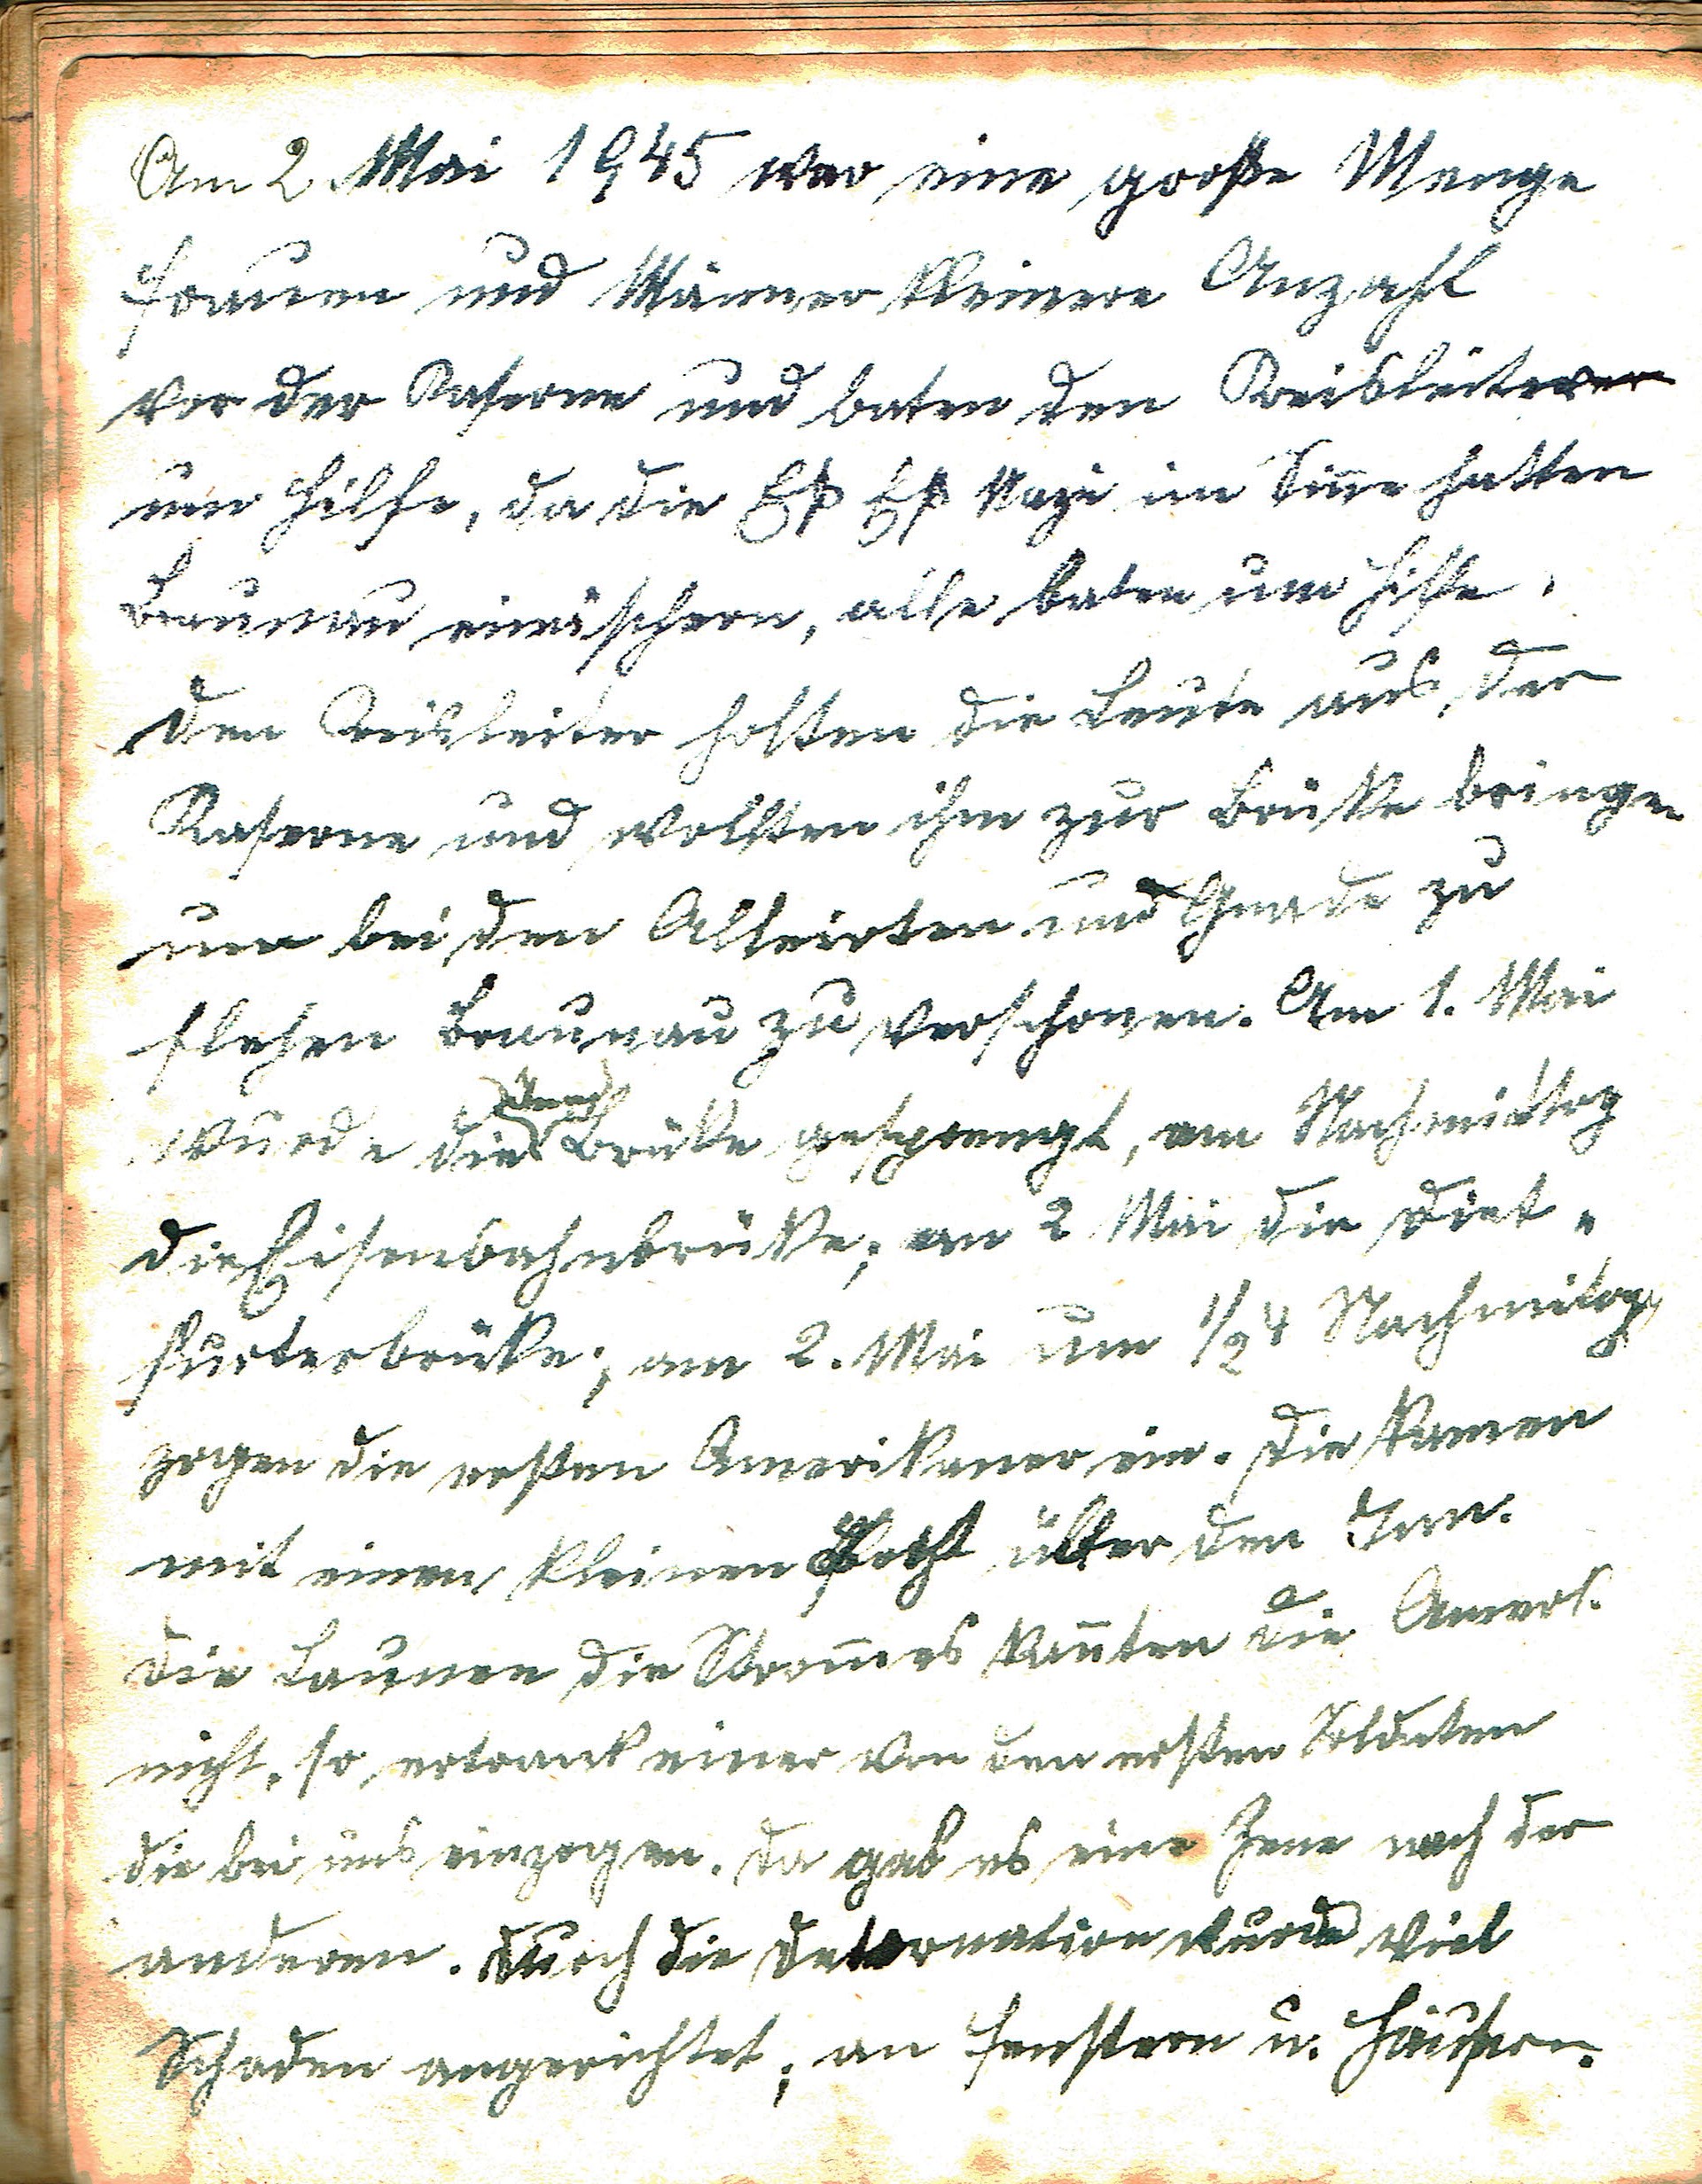 Am 2. Mai 1945 war eine große Menge
Frauen und Männer kleinere Anzahl
vor der Kaserne und baten den Kreisleiter
um Hilfe, da die SS Nazi im Sinne hatten
Braunau einäschern, alle baten um Hilfe.
Den Kreisleiter holten die Leute aus der
Kaserne und wollten ihm zur Brüke bringen
um bei den Allierten um Gnade zu
flehen Braunau zu verschonen. Am 1. Mai
wurde die (Inn) Brüke gesprengt, am Nachmittag
die Eisenbahnbrüke; am 2 Mai die Diet-
furterbrüke; am 2. Mai um 1/2 4 Nachmitag
zogen die ersten Amerikaner ein. Die kamen
mit einen kleinen über den Inn.
Die Launen die Stromes kannten die Amers.
nicht, so ertrank einer von den ersten Soldaten
die bei uns einzogen. Da gab es eine Zene nach der
anderen. Durch die Detonation wurde viel
Schaden angerichtet; an Fenstern u. Häusern.